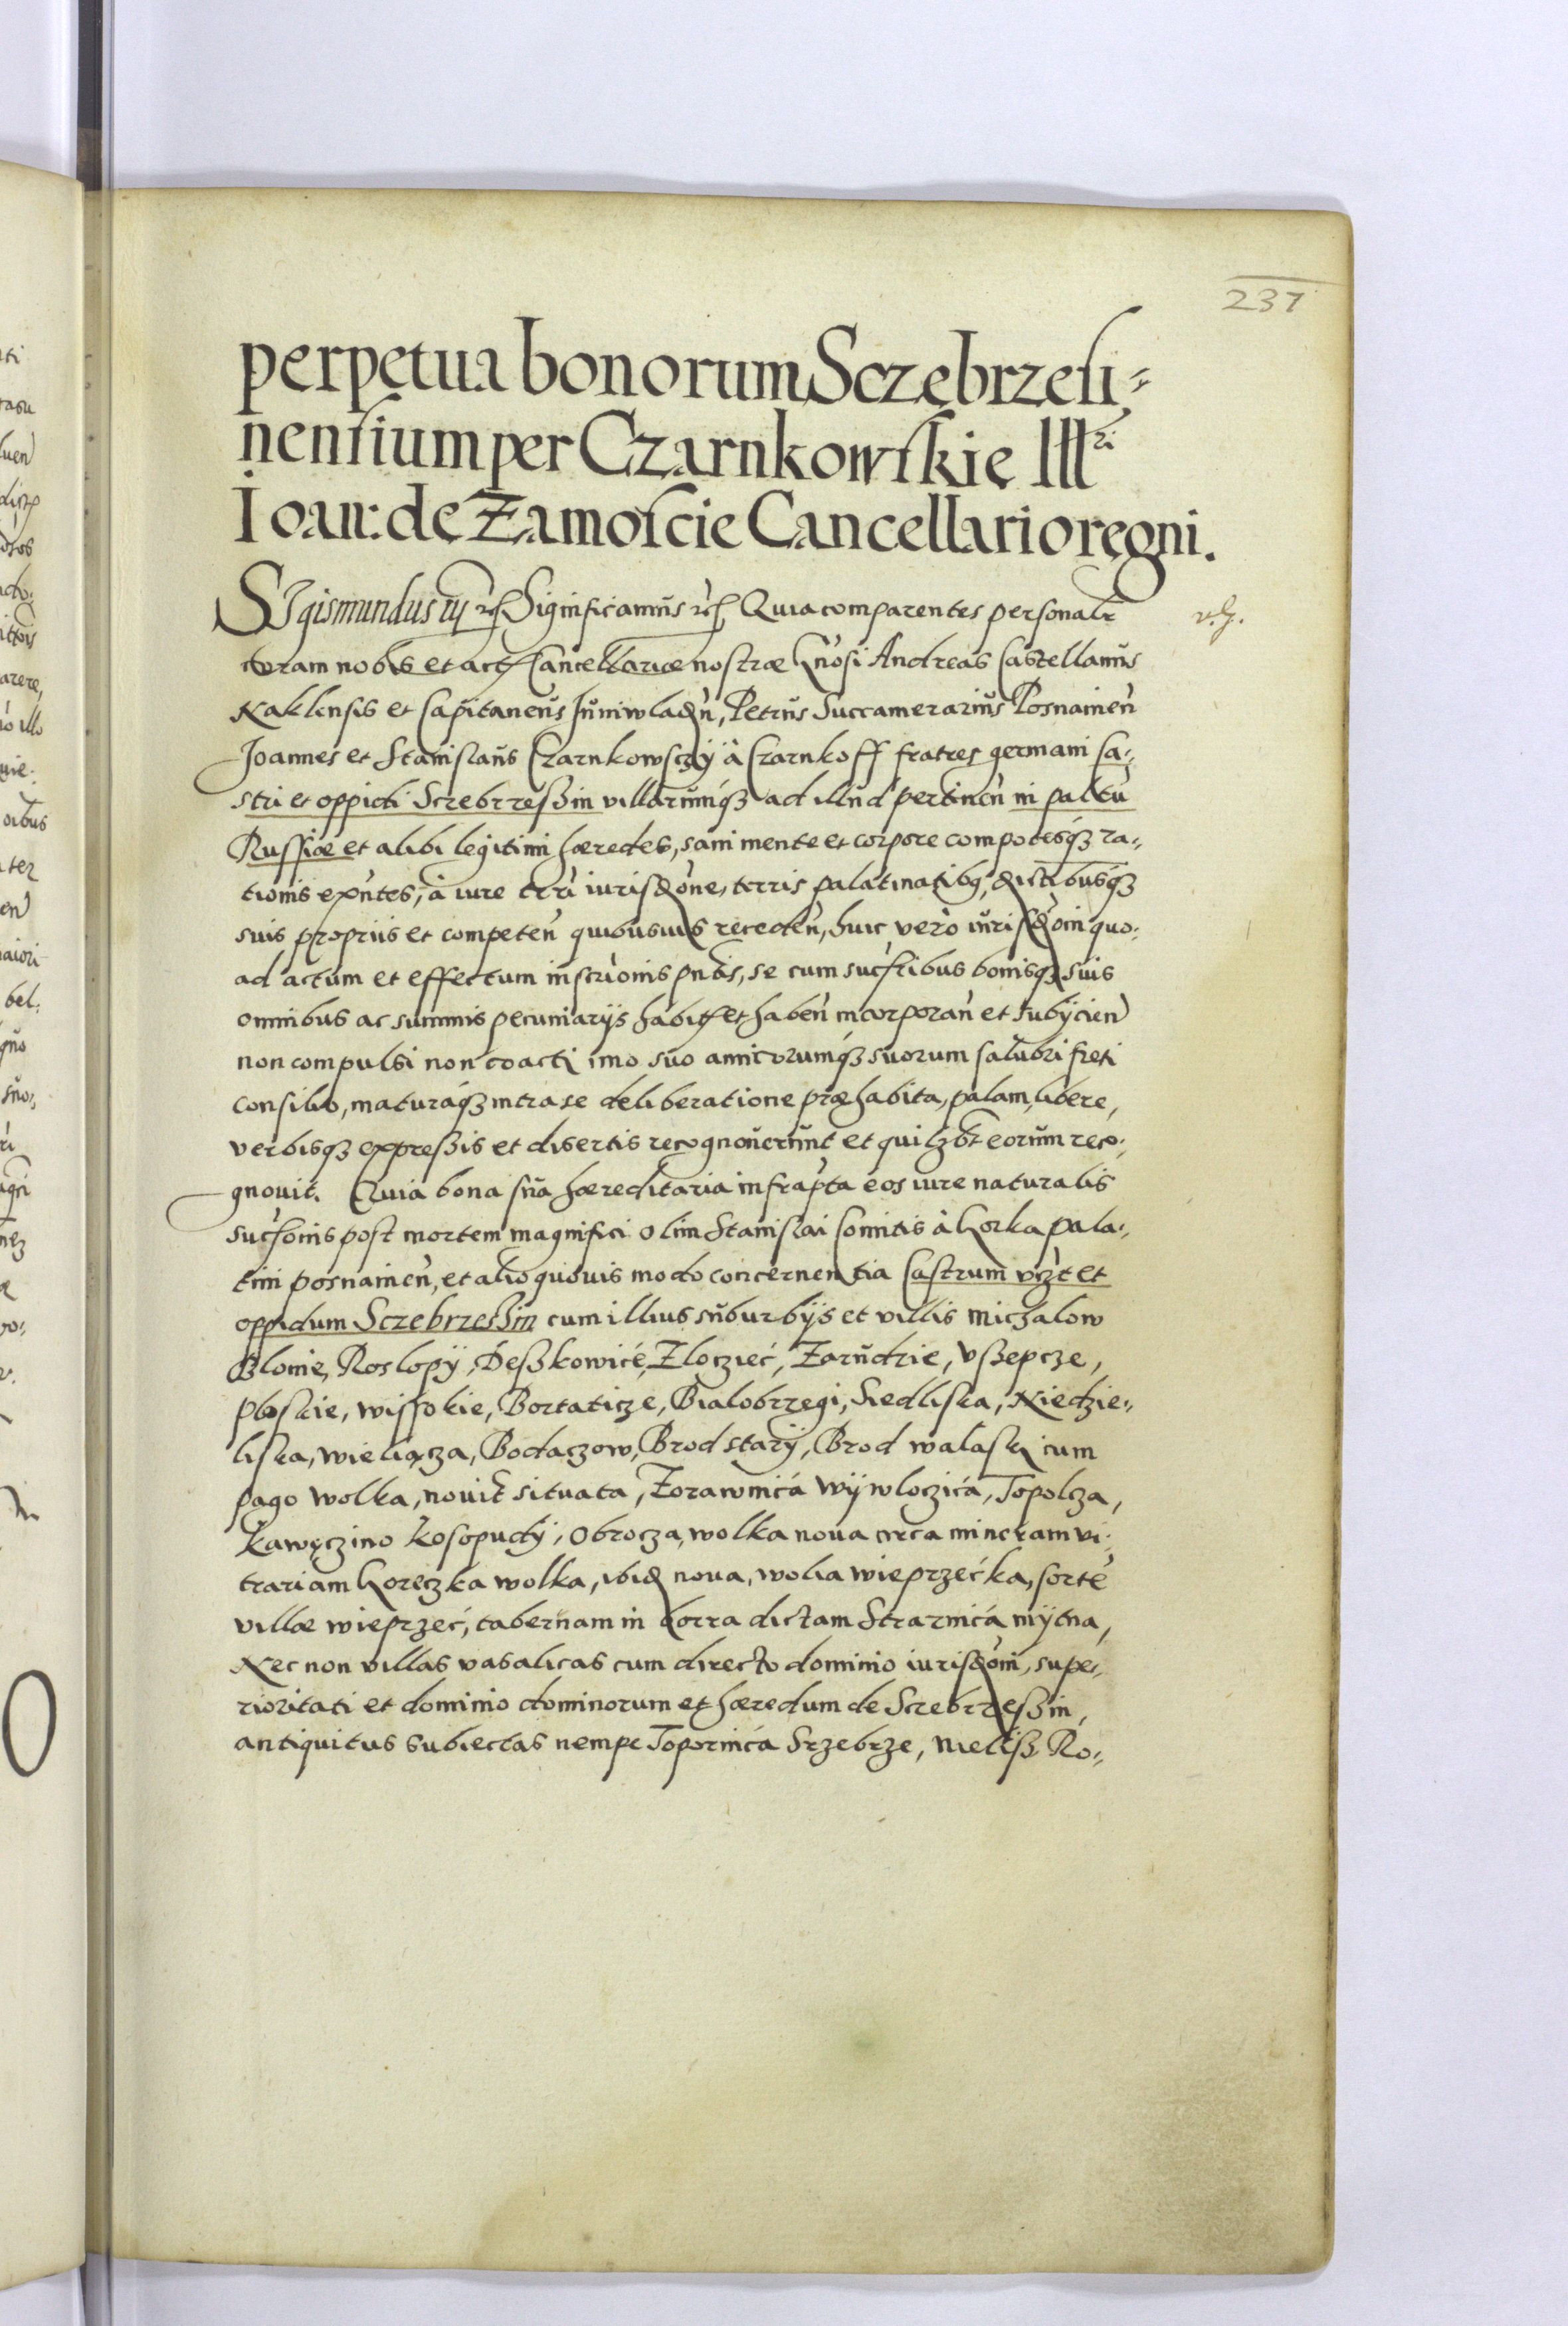 237
perpetua bonorum Sczebrzesi⸗
nensium per Czarnkowskie Ill^ri
Ioan: de Zamoscie Cancellario regni.
SIgismundus iij rc̃ Significamus rc̃ Quia comparentes personalr
coram nobis et actis Cancellariæ nostræ Gnosi Andreas Castellanus
Naklensis et Capitaneus Juniwladn̄, Petrus Succamerarius Posnanien̄
Joannes et Stanislaus Czarnkowsczÿ à Czarnkoff fratres germani Ca⸗
stri et oppidi Sczebrzeßin villarumq3 ad illud pertinen̄ in paltu
Russiæ et alibi legitimi hæredes, sani mente et corpore compotesq3 ra⸗
tionis exñtes, à iure trrī iurisdōne, terris palatinatibq, districtibusq3
suis propriis et competen̄ quibusuis receden̄, huic verò iurisdōni quo⸗
ad actum et effectum inscrōnis pn̄tis, se cum sucsribus bonisq3 suis
omnibus ac summis pecuniarijs habitis et haben̄ incorporan̄ et subijcien̄
non compulsi non coacti imo suo amicorumq3 suorum salubri freti
consilio, maturaq3 intra se deliberatione præhabita, palam, libere,
verbisq3 expreßis et disertis recognouerunt et quilzbt eorum reco⸗
gnouit. Quia bona sua hæreditaria infrapta eos iure naturalis
sucsonis post mortem magnifici olim Stanislai Comitis à Gorka pala⸗
tini posnanien̄, et alio quouis modo concernentia Castrum vizt et
oppidum Sczebrzeßin cum illius suburbijs et villis Michalow
Blonie, Roslopÿ, Deßkowice, Zlocziec, Zarudzie, Vßepcze,
Ploskie, Wissokie, Bortaticze, Bialobrzegi, Siedliska, Niedzie⸗
liska, Wieliącza, Bodaczow, Brod starÿ, Brod walaski cum
pago wolka, nouit situata, Zorawnica Wÿwloczica, Topolcza,
Kawęczino Kosopudÿ, Obrocza, wolka noua circa mineram vi⸗
trariam Goreczka wolka, ibid noua, wolia wieprzecka, sorte
villæ wieprzec, tabernam in Gorra dictam Strarnica mÿtna,
Nec non villas vasalicas cum directo dominio iurisdōni, supe⸗
rioritati et dominio dominorum et hæredum de Sczebrzeßin,
antiquitus subiectas nempe Topornica Srzebrze, Mieliß Ro⸗